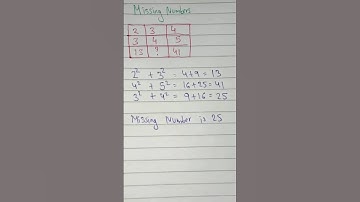 Missing Numbers
2 3 4
3 4 5
13 ? 41
2² + 3² = 4+9 = 13
4² + 5² = 16+25 = 41
3² + 4² = 9+16 = 25
Missing Number is 25